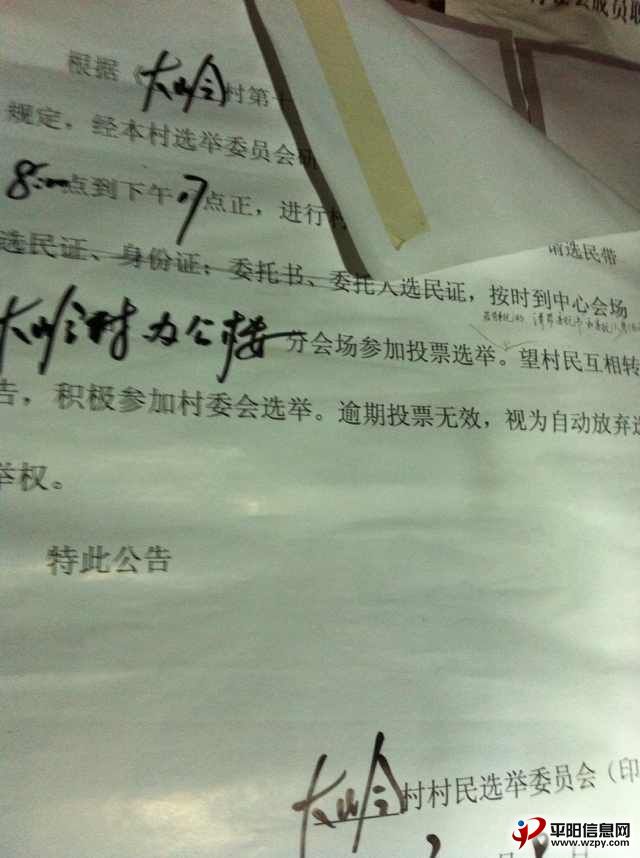 会成员职
根据《大岭村第十
规定，经本村选举委员会研
8:00点到下午17点正，进行村
请选民带
选民证、身份证；委托书、委托人选民证，按时到中心会场
大岭村办公楼分会场参加投票选举。望村民互相转
告，积极参加村委会选举。逾期投票无效，视为自动放弃选
举权。
特此公告
大岭村村民选举委员会（印
月 日
平阳信息网
www.wzpy.com